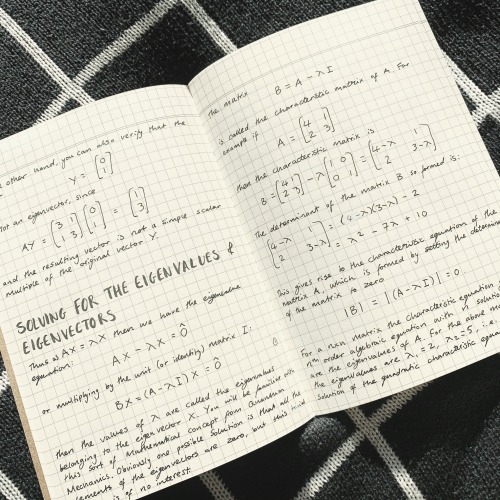 other hand, you can also verify that the
Y = [0 1]
not an eigenvector, since
AY = [3 1 1 3] [0 1] = [1 3]
and the resulting vector is not a simple scalar
multiple of the original vector Y.
SOLVING FOR THE EIGENVALUES &
EIGENVECTORS
Thus is AX = λX then we have the eigenvalue
equation:
AX - λX = 0̂
or multiplying by the unit (or identity) matrix I:
BX = (A - λI)X = 0̂
then the values of λ are called the eigenvalues
belonging to the eigenvector X. You will be familiar with
this sort of Mathematical concept from Quantum
Mechanics. Obviously one possible solution is that all the
elements of the eigenvectors are zero, but this
is of no interest.
the matrix B = A - λI
is called the characteristic matrix of A. For
example if
A = [4 1 2 3]
then the characteristic matrix is
B = [4 1 2 3] - λ[1 0 0 1] = [4-λ 1 2 3-λ]
the determinant of the matrix B so formed is:
[4-λ 1 2 3-λ] = (4-λ)(3-λ) - 2
= λ² - 7λ + 10
This gives rise to the characteristic equation of the
matrix A, which is formed by setting the determinant
of the matrix to zero
|B| = |(A-λI)| = 0
For a nxn matrix the characteristic equation
nth order algebraic equation with n solutions
are the eigenvalues of A. For the above
the eigenvalues are λ₁ = 2, λ₂ = 5, i.e.
solution of the quadratic characteristic